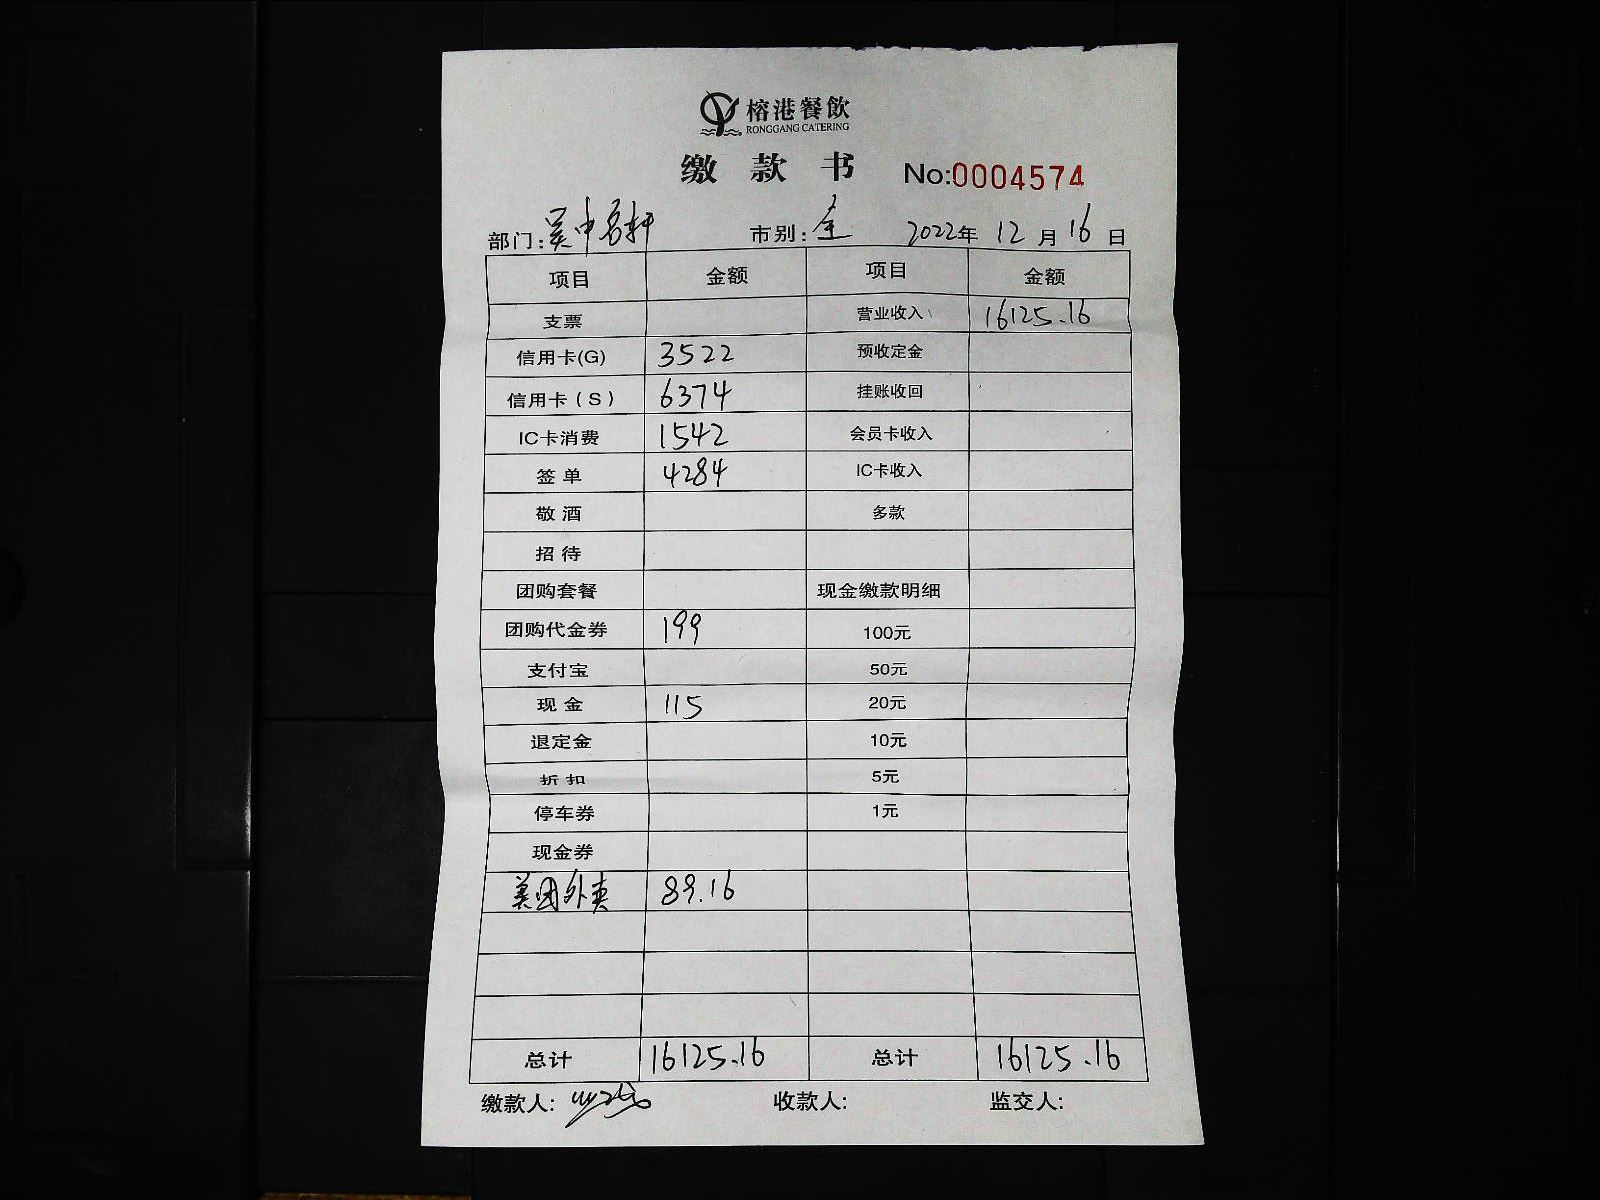 榕港餐飲
RONGGANG CATERING
缴款书 No:0004574
部门:吴中名轩 市别:全 2022年12月16日
项目 金额 项目 金额
支票 营业收入 16125.16
信用卡(G) 3522 预收定金
信用卡(S) 6374 挂账收回
IC卡消费 1542 会员卡收入
签单 4284 IC卡收入
敬酒 多款
招待
团购套餐 现金缴款明细
团购代金券 199 100元
支付宝 50元
现金 115 20元
退定金 10元
折扣 5元
停车券 1元
现金券
美团外卖 89.16
总计 16125.16 总计 16125.16
缴款人: 收款人: 监交人: